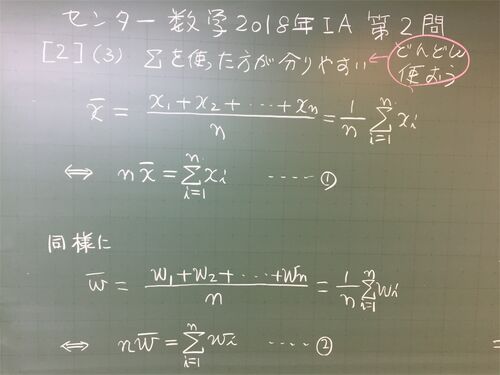 センター数学2018年IA 第2問
[2](3) Σを使った方が分りやすい ← どんどん使おう
x̄ = (x₁+x₂+⋯+xₙ)/n = 1/n Σ_{i=1}^{n} xᵢ
⇔ nx̄ = Σ_{i=1}^{n} xᵢ ‥‥‥ ①
同様に
w̄ = (w₁+w₂+⋯+wₙ)/n = 1/n Σ_{i=1}^{n} wᵢ
⇔ nw̄ = Σ_{i=1}^{n} wᵢ ‥‥‥ ②
=